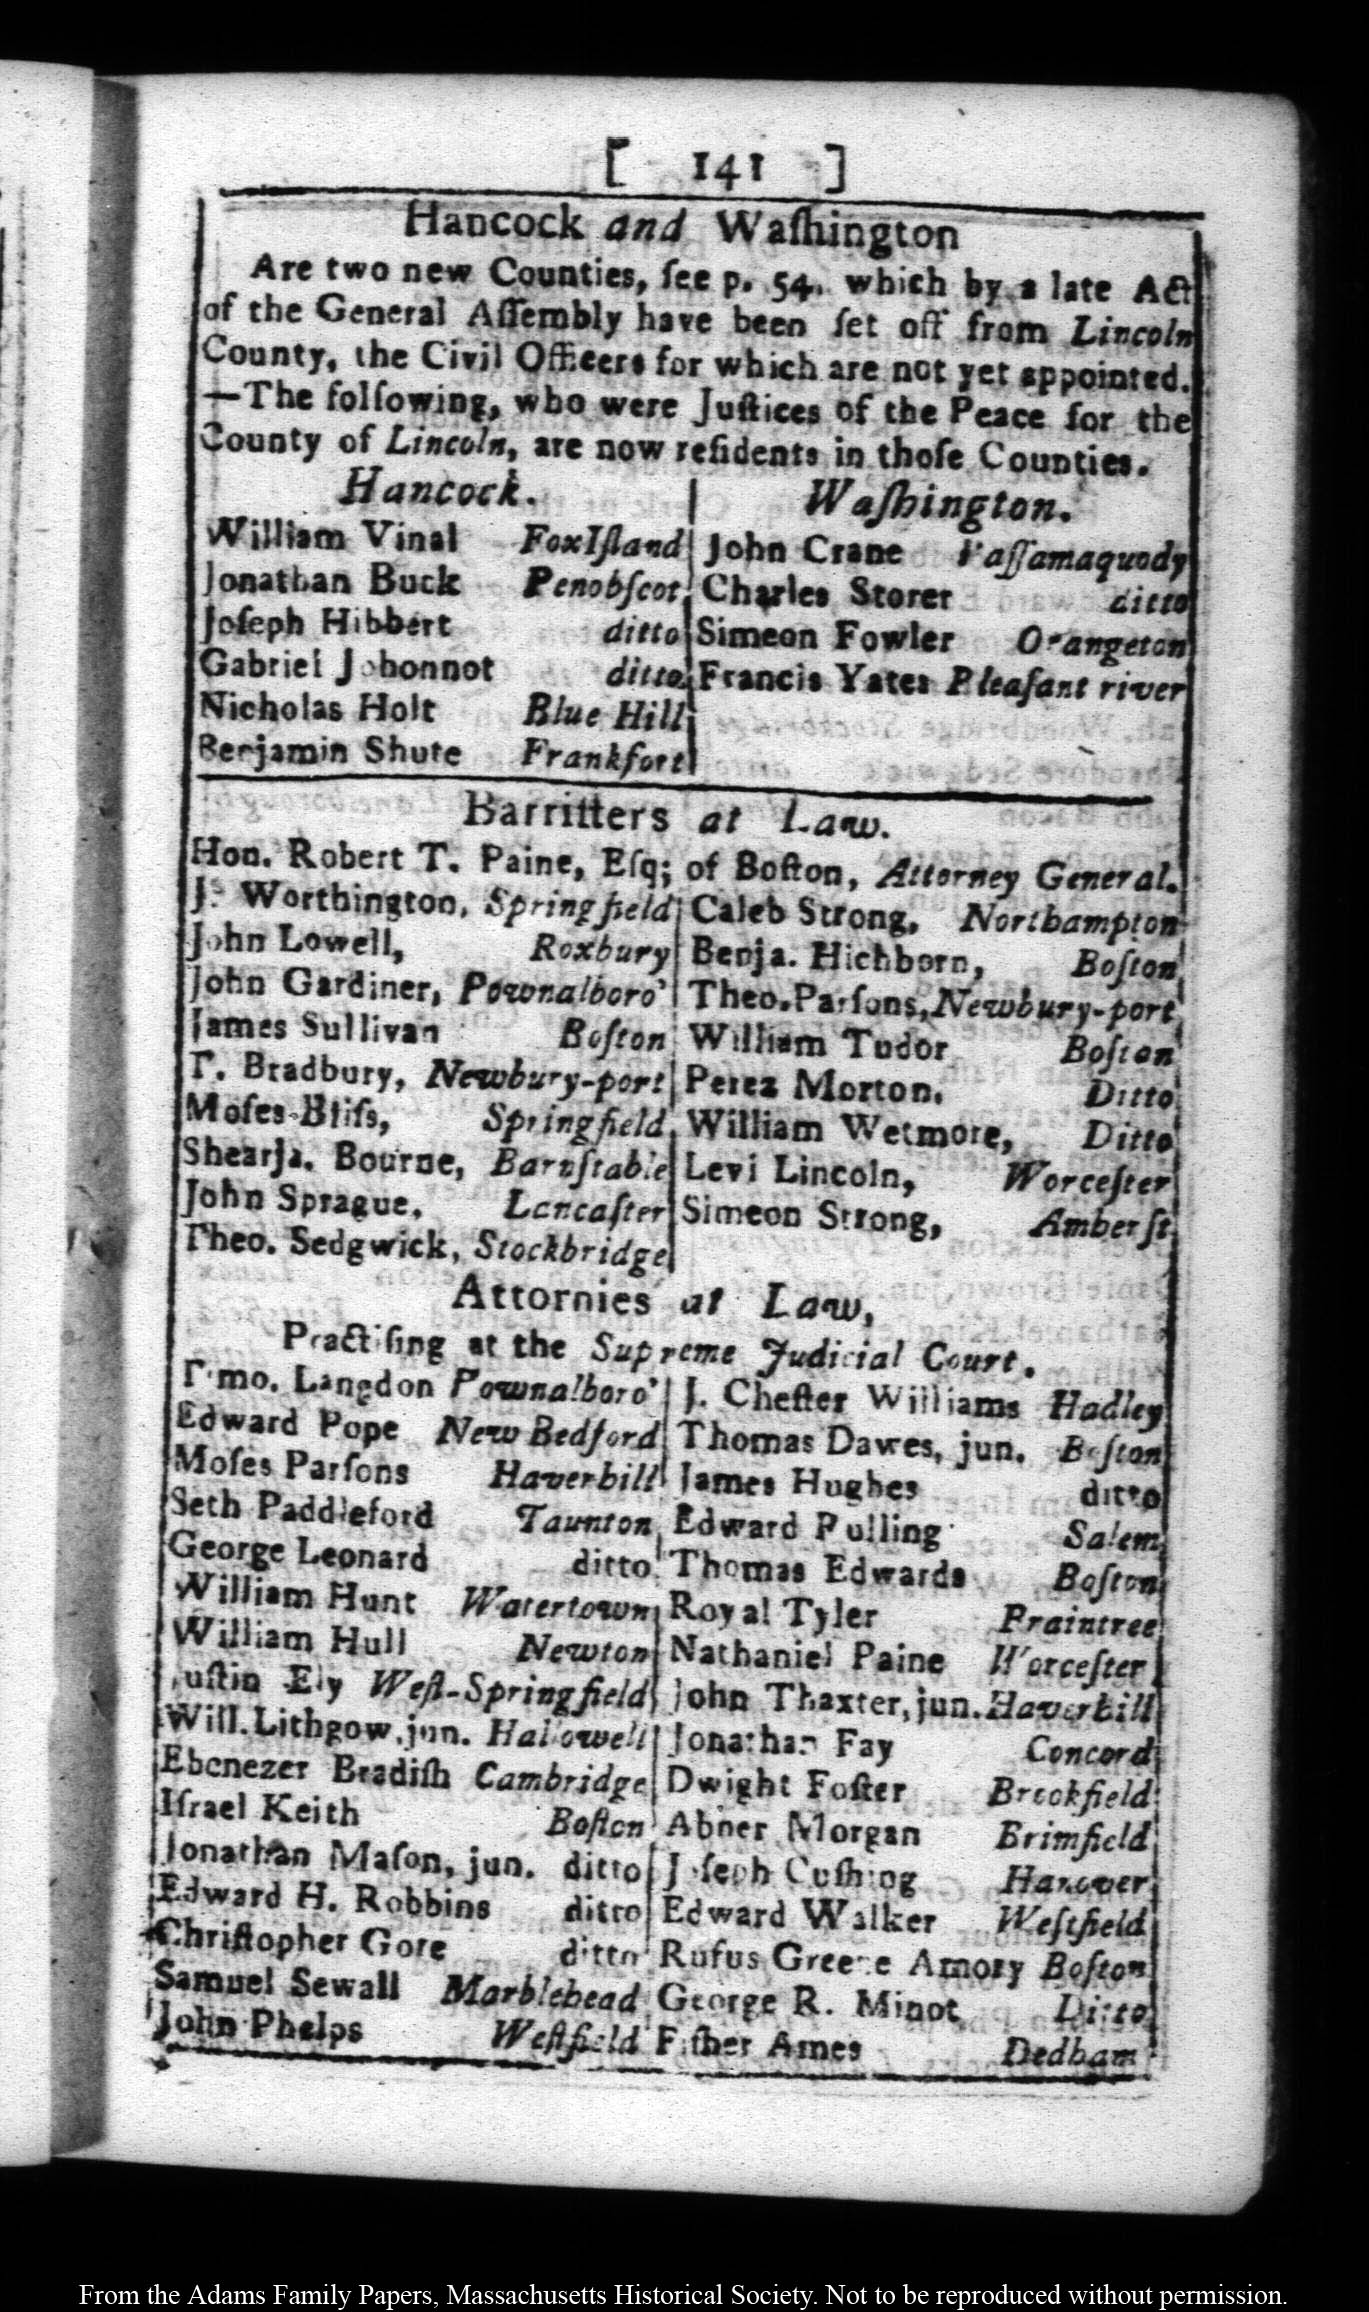 [ 141 ]
Hancock and Waſhington
Are two new Counties, ſee p. 54. which by a late Act
of the General Aſſembly have been ſet off from Lincoln
County, the Civil Officers for which are not yet appointed.
—The following, who were Juſtices of the Peace for the
County of Lincoln, are now reſidents in thoſe Counties.
Hancock.
William Vinal Fox Iſland
Jonathan Buck Penobſcot
Joſeph Hibbert ditto
Gabriel Johonnot ditto
Nicholas Holt Blue Hill
Benjamin Shute Frankfort
Waſhington.
John Crane Paſſamaquody
Charles Storer ditto
Simeon Fowler Orangeton
Francis Yates Pleaſant river
Barriſters at Law.
Hon. Robert T. Paine, Eſq; of Boſton, Attorney General.
Jⁿ Worthington, Springfield
John Lowell, Roxbury
John Gardiner, Pownalboro'
James Sullivan Boſton
T. Bradbury, Newbury-port
Moſes Bliſs, Springfield
Shearja. Bourne, Barnſtable
John Sprague, Lancaſter
Theo. Sedgwick, Stockbridge
Caleb Strong, Northampton
Benja. Hichborn, Boſton
Theo. Parſons, Newbury-port
William Tudor Boſton
Perez Morton. Ditto
William Wetmore, Ditto
Levi Lincoln, Worceſter
Simeon Strong, Amherſt
Attornies at Law,
Practiſing at the Supreme Judicial Court.
Timo. Langdon Pownalboro'
Edward Pope New Bedford
Moſes Parſons Haverhill
Seth Paddleford Taunton
George Leonard ditto
William Hunt Watertown
William Hull Newton
Juſtin Ely Weſt-Springfield
Will. Lithgow, jun. Hallowell
Ebenezer Bradiſh Cambridge
Iſrael Keith Boſton
Jonathan Maſon, jun. ditto
Edward H. Robbins ditto
Chriſtopher Gore ditto
Samuel Sewall Marblehead
John Phelps Weſtfield
J. Cheſter Williams Hadley
Thomas Dawes, jun. Boſton
James Hughes ditto
Edward Pulling Salem
Thomas Edwards Boſton
Royal Tyler Braintree
Nathaniel Paine Worceſter
John Thaxter, jun. Haverhill
Jonathan Fay Concord
Dwight Foſter Brookfield
Abner Morgan Brimfield
Joſeph Cuſhing Hanover
Edward Walker Weſtfield
Rufus Greene Amory Boſton
George R. Minot Ditto
Fiſher Ames Dedham
From the Adams Family Papers, Massachusetts Historical Society. Not to be reproduced without permission.